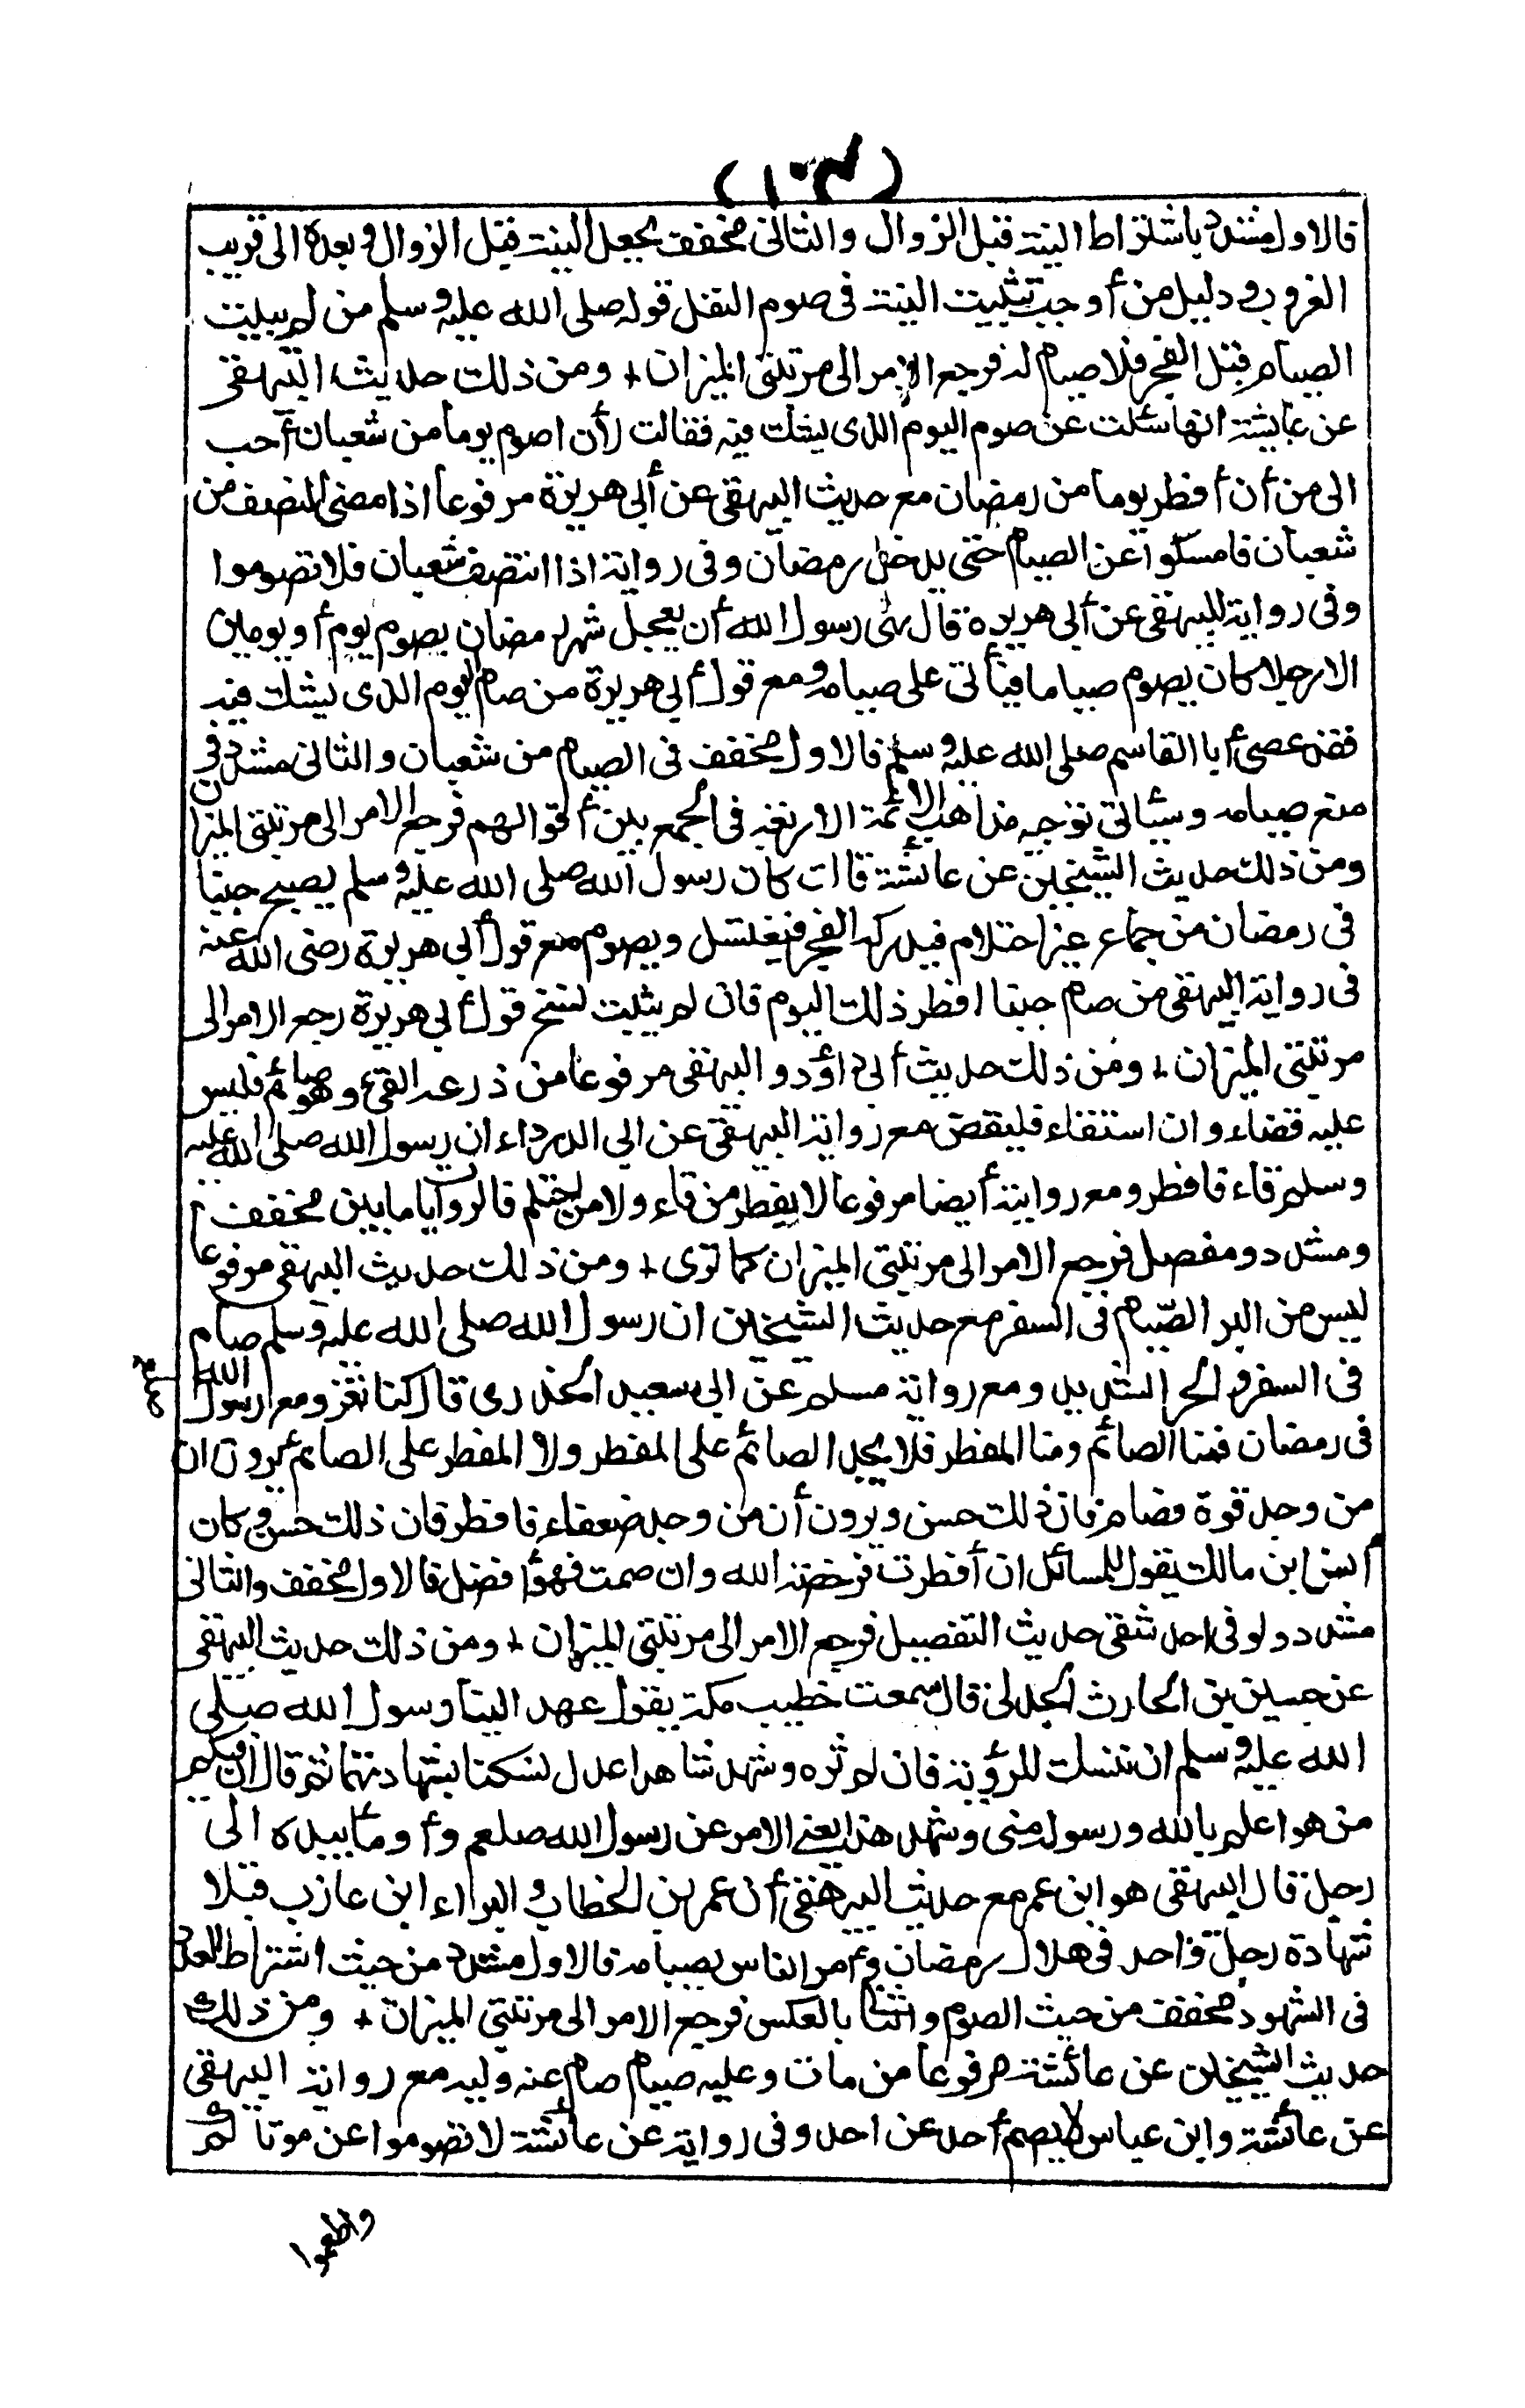 (١٠٣)
فالاول مشدد باشتراط النية قبل الزوال والثانى مخفف بجعل النية قبل الزوال وبعده الى قريب
الغروب ودليل من أوجب تثبيت النية فى صوم النفل قوله صلى الله عليه وسلم من لم يبيت
الصيام قبل الفجر فلا صيام له فرجع الامر الى مرتبتى الميزان + ومن ذلك حديث البيهقى
عن عايشة انها سئلت عن صوم اليوم الذى يشك فيه فقالت لأن اصوم يوما من شعبان أحب
الى من أن أفطر يوما من رمضان مع حديث البيهقى عن أبى هريرة مرفوعا اذا مضى النصف من
شعبان فامسكوا عن الصيام حتى يدخل رمضان وفى رواية اذا انتصف شعبان فلا تصوموا
وفى رواية للبيهقى عن أبى هريره قال نهى رسول الله أن يعجل شهر رمضان بصوم يوم أو يومين
الا رجلا كان يصوم صياما فيأتى على صيامه ومع قول أبى هريرة من صام اليوم الذى يشك فيه
فقد عصى أبا القاسم صلى الله عليه وسلم فالاول مخفف فى الصيام من شعبان والثانى مشدد فى
منع صيامه وسيأتى توجيه مذاهب الائمة الاربعة فى الجمع بين أقوالهم فرجع الامر الى مرتبتى الميزان
ومن ذلك حديث الشيخين عن عائشة قالت كان رسول الله صلى الله عليه وسلم يصبح جنبا
فى رمضان من جماع غير احتلام فيدركه الفجر فيغتسل ويصوم مع قول أبى هريرة رضى الله عنه
فى رواية البيهقى من صام جنبا افطر ذلك اليوم فان لم يثبت نسخ قول أبى هريرة رجع الامر الى
مرتبتى الميزان + ومن ذلك حديث أبى داؤد و البيهقى مرفوعا من ذرعه القئ وهو صائم فليس
عليه قضاء وان استقاء فليقض مع رواية البيهقى عن ابى الدرداء ان رسول الله صلى الله عليه
وسلم قاء فافطر ومع روايته أيضا مرفوعا لا يفطر من قاء ولا من احتلم فالروايات ما بين مخفف
ومشدد ومفصل فرجع الامر الى مرتبتى الميزان كما ترى + ومن ذلك حديث البيهقى مرفوعا
ليس من البر الصّيام فى السفر مع حديث الشيخين ان رسول الله صلى الله عليه وسلم صام
فى السفر فى الحر الشديد ومع رواية مسلم عن ابى سعيد الخدرى قال كنا نغزو مع رسول الله صلعم
فى رمضان فمنا الصائم ومنا المفطر فلا يجد الصائم على المفطر ولا المفطر على الصائم يرون ان
من وجد قوة فصام فان ذلك حسن ويرون أن من وجد ضعفاء فافطر فان ذلك حسن وكان
أنس ابن مالك يقول للسائل ان أفطرت فرخصة الله وان صمت فهو أفضل فالاول مخفف والثانى
مشدد ولو فى احد شقى حديث التفصيل فرجع الامر الى مرتبتى الميزان + ومن ذلك حديث البيهقى
عن حسين بن الحارث الجدلى قال سمعت خطيب مكة يقول عهد الينا رسول الله صلى
الله عليه وسلم ان ننسك للرؤية فان لم نره وشهد شاهدا عدل نسكنا بشهادتهما ثم قال ان فيكم
من هو اعلم بالله ورسوله منى وشهد هذا يعنى الامر عن رسول الله صلعم وأومأ بيده الى
رجل قال البيهقى هو ابن عمر مع حديث البيهقى أن عمر بن الخطاب والبراء ابن عازب قبلا
شهادة رجل واحد فى هلال رمضان وأمر الناس بصيامه فالاول مشدد من حيث اشتراط العدد
فى الشهود مخفف من حيث الصوم والثانى بالعكس فرجع الامر الى مرتبتى الميزان + ومن ذلك
حديث الشيخين عن عائشة مرفوعا من مات وعليه صيام صام عنه وليه مع رواية البيهقى
عن عائشة وابن عباس لا يصم أحد عن احد وفى رواية عن عائشة لا تصوموا عن موتاكم
واطعموا